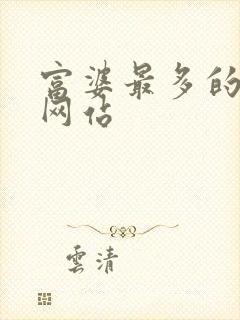 富婆最多的
网站
雲清